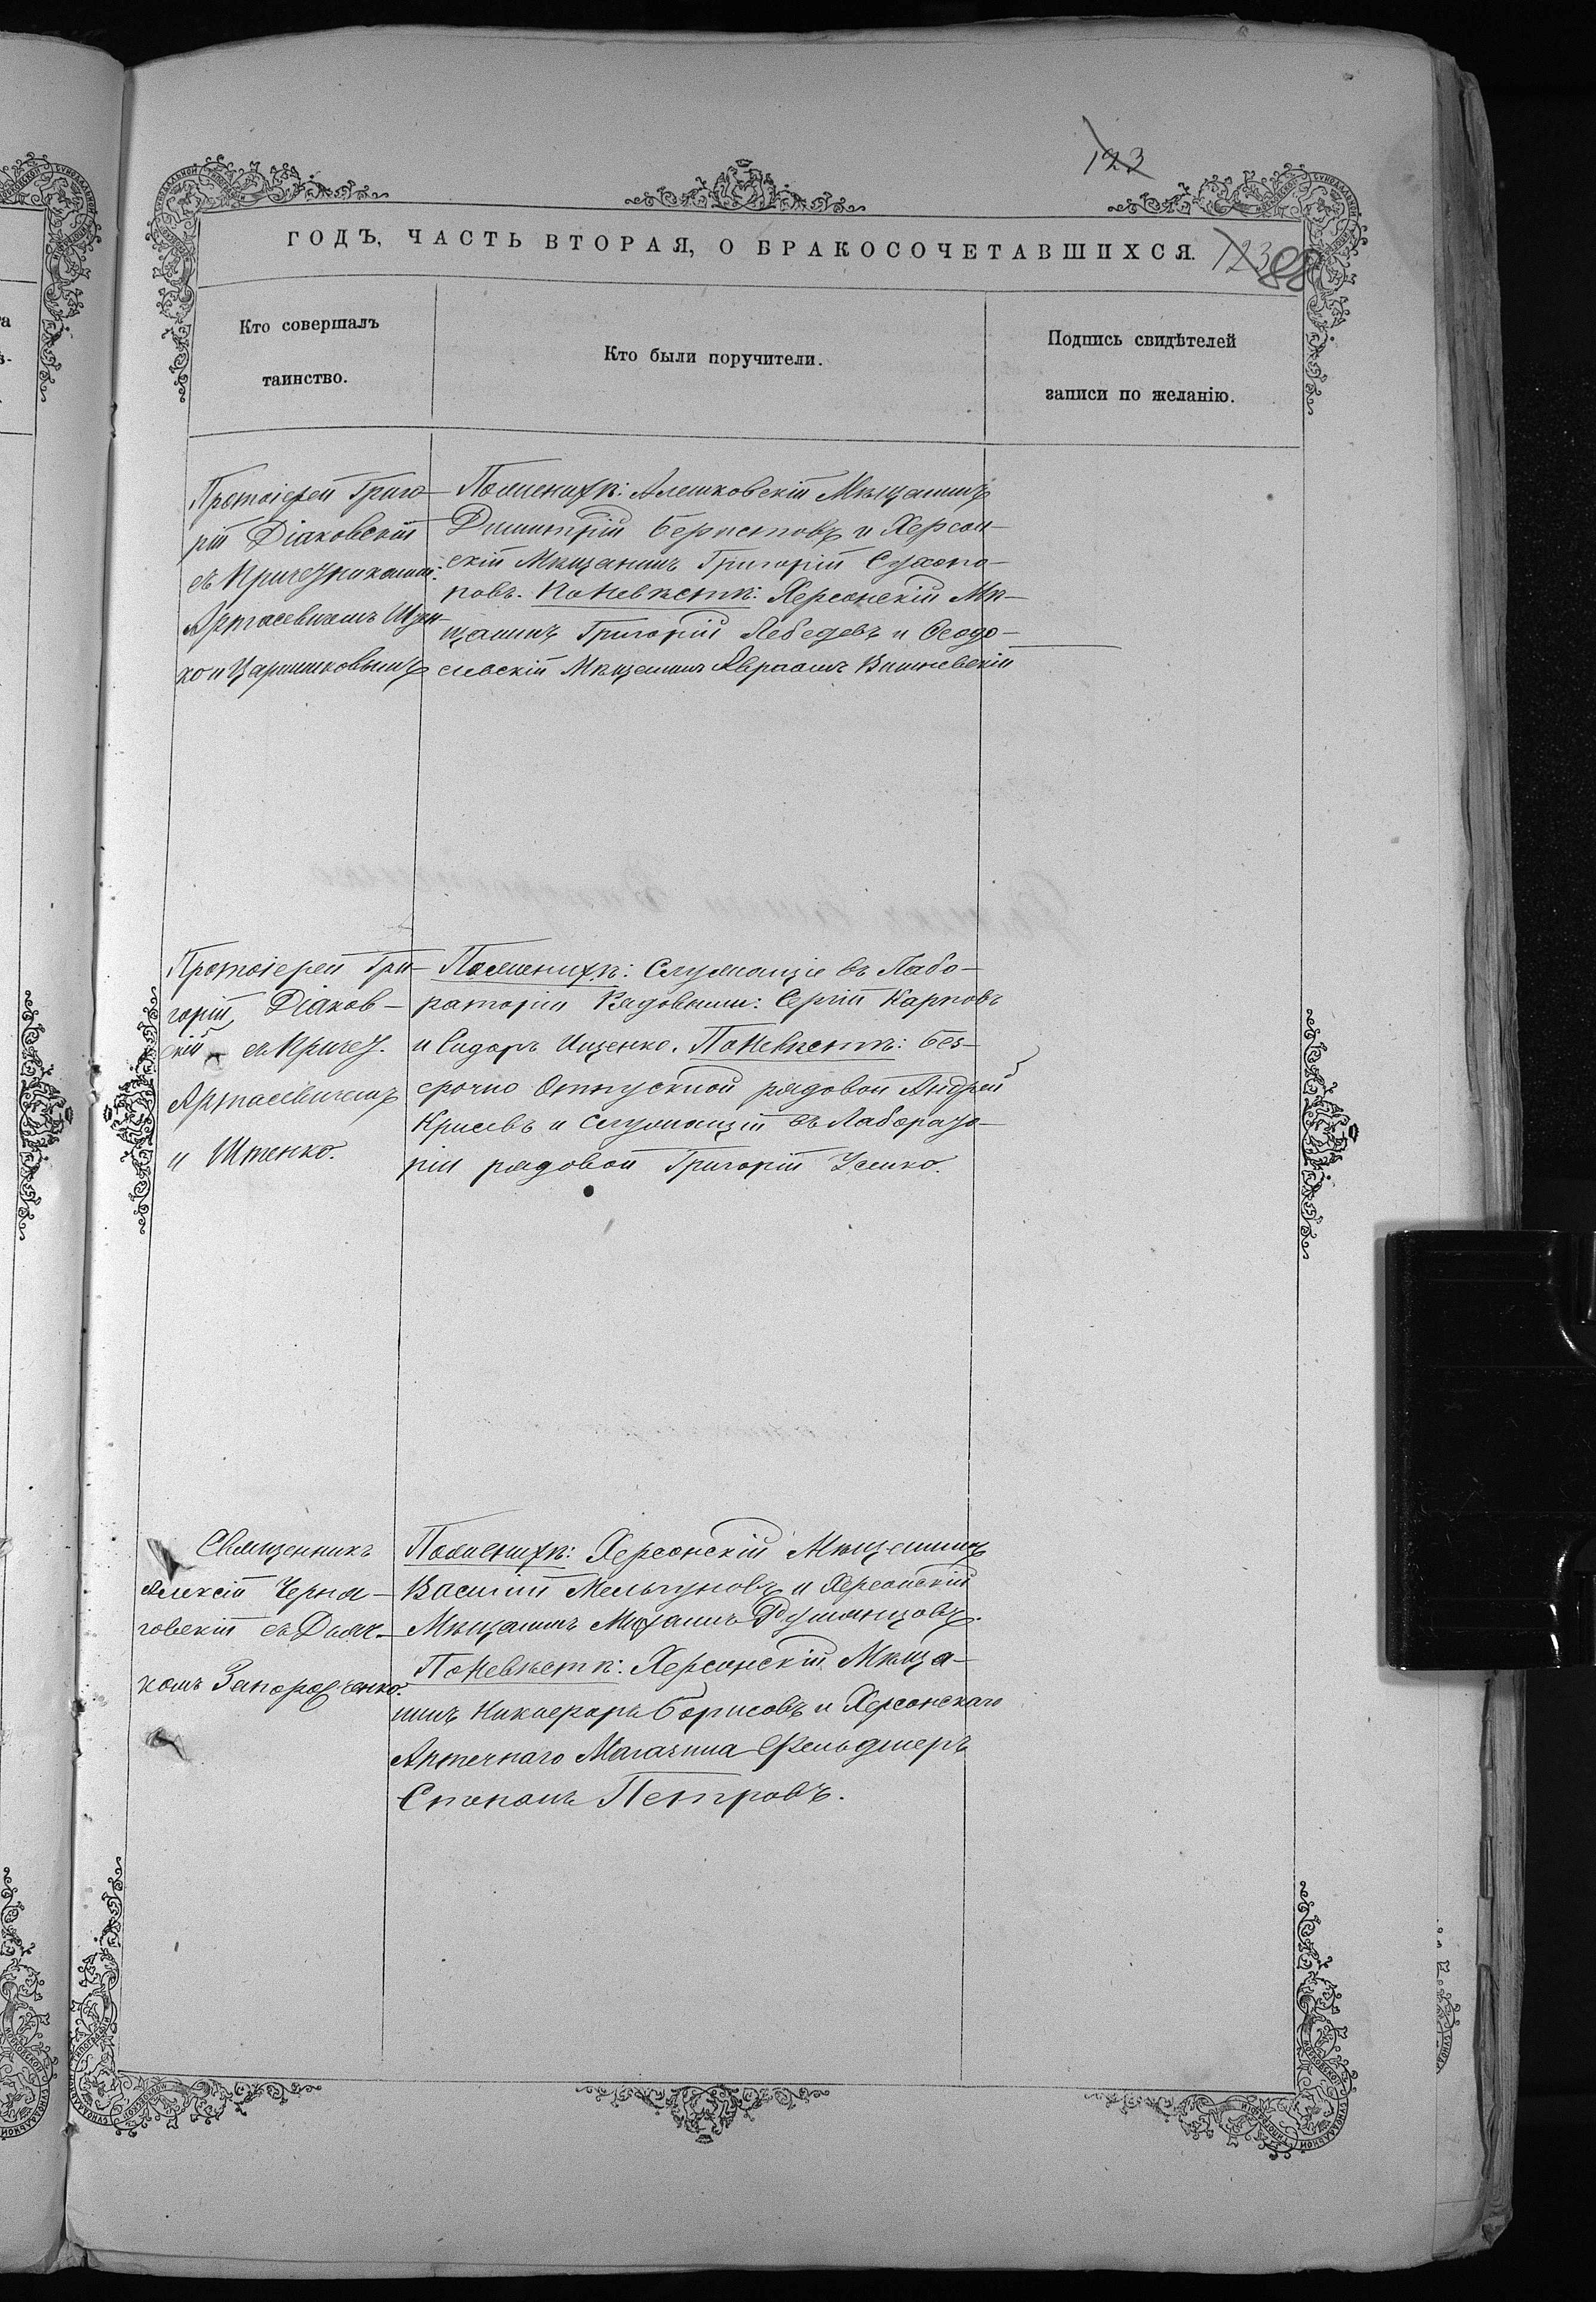 123
ГОДЪ, ЧАСТЬ ВТОРАЯ, О БРАКОСОЧЕТАВШИХСЯ.
123 88
Кто совершалъ
таинство.
Кто были поручители.
Подпись свидѣтелей
записи по желанію.
Протоіерей Григо-
рій Діаковскій
съ Причетниками:
Артасевичемъ Ищен-
ко и
По женихѣ: Алешковскій Мѣщанинъ
Димитрій Берестовъ и Херсон-
скій Мѣщанинъ Григорій Сухопа-
ровъ. По невѣстѣ: Херсонскій Мѣ-
щанинъ Григорій Лебедевъ и Ѳеодо-
сіевскій Мѣщанинъ Авраамъ Вишневскій
Протоіерей Гри-
горій Діаков-
скій съ Причет.
Артасевичемъ
и
По женихѣ: Служащіе въ Лабо-
раторіи Рядовыми: Сергій Карповъ
и Сидоръ Ищенко. По невѣстѣ: без-
срочно Отпускной рядовой Андрей
и Служащій въ Лаборато-
ріи рядовой Григорій Усенко.
Священникъ
Алексій Черня-
ховскій съ Дьяч-
комъ Запорожченко.
По женихѣ: Херсонскій Мѣщанинъ
Василій Мельгуновъ и Херсонскій
Мѣщанинъ Михаилъ Румянцовъ.
По невѣстѣ: Херсонскій Мѣща-
нинъ Никифоръ Борисовъ и Херсонскаго
Аптечнаго Магазина Фельдшеръ
Степанъ Петровъ.